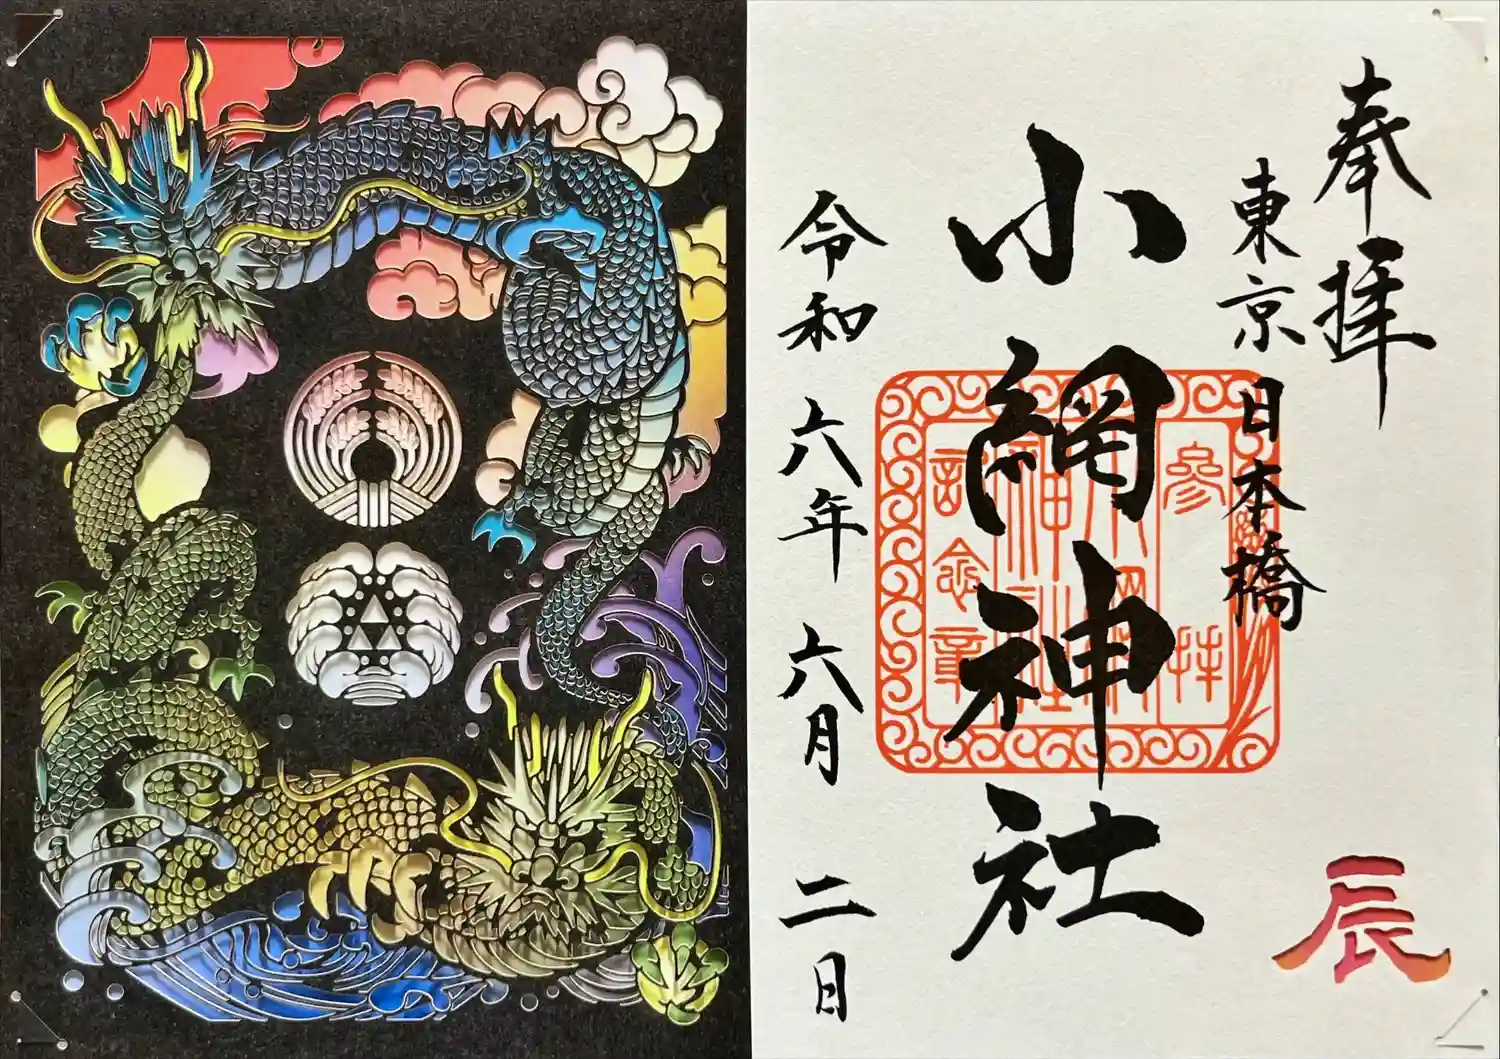 奉拝
東京 日本橋
小網神社
参拝
小網
神社
記念章
令和六年六月二日
辰